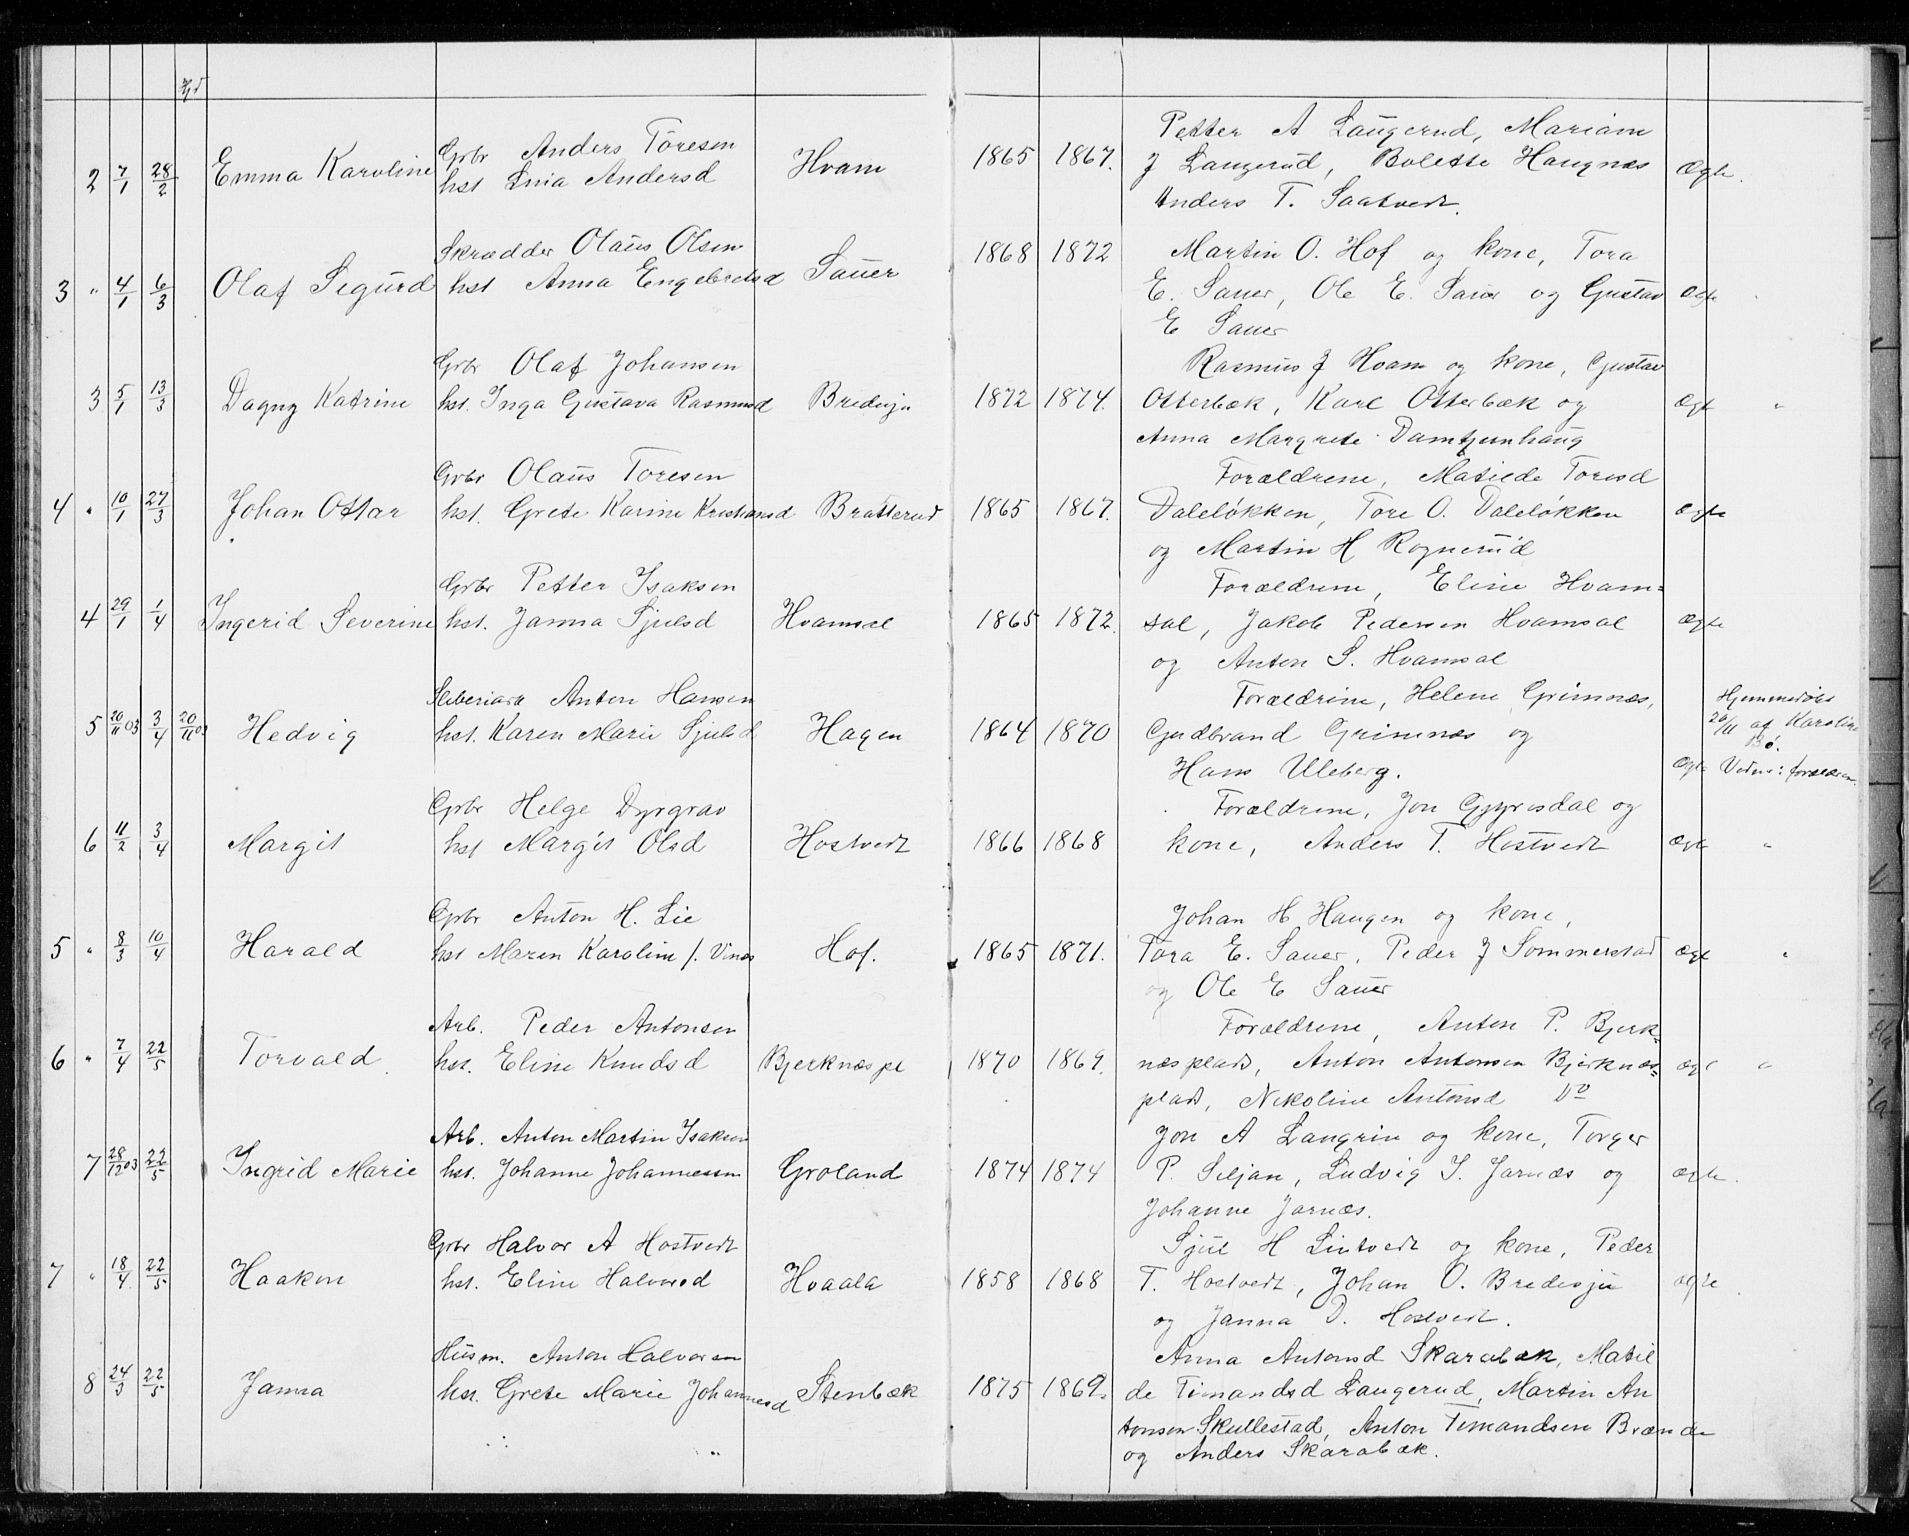 Petter A Laugerud, Mariam
2 7/1 28/2 Emma Karoline Grbr Anders Toresen Hvam 1865 1867. J Laugerud, Bolette Haugnæs Ægte.
hst Andersd Anders T. Saatvedt.
Skrædder Olaus Olsen Martin O. Hof og kone, Tora
3 " 4/1 6/3 Olaf Sigurd hst Anna Engebretsd Sauer 1868 1872 E. Sauer, Ole E. Sauer og Gustav ægte "
E Sauer
Grbr Olaf Johansen Rasmus J Hvam og kone, Gustav
3 5/1 13/3 Dagny Katrine hst. Inga Gustava Rasmusd Bredesju 1872 1874. Otterbæk, Karl Otterbæk og ægte "
Anna Margrete Damtjernhaug
Grbr Olaus Toresen Forældrene, Matilde Toresd
4 " 10/1 27/3 Johan Ottar hst. Grete Karine Kristiansd Bratterud 1865 1867. Daleløkken, Tore O. Daleløkken ægte
og Martin H Rognerud
Grbr Petter Isaksen Forældrene, Eline Hvam=
4 29/1 1/4 Ingerid Severine hst. Janna Sjulsd Hvamsal 1865 1872. sal, Jakob Pedersen Hvamsal ægte
og Anton S. Hvamsal
Sliberiarb Anton Hansen Forældrene, Helene Grimnæs, Hjemmedøbt
5 20/11 03 3/4 20/11 03 Hedvig hst. Karen Marie Sjulsd Hagen 1864 1870 Gudbrand Grimnæs og 20/11 af Karoline
Bø.
Hans Uleberg. Ægte Vidner: forældrene
Grbr Helge Dyrgrav Forældrene, Jon Gjyvesdal og
6 11/2 3/4 Margit hst Margit Olsd Hostvedt 1866 1868 kone, Anders T. Hostvedt ægte "
Grbr Anton H. Lie Johan H Haugen og kone,
5 " 8/3 10/4 Harald hst Maren Karoline f. Vinæs Hof. 1865 1871. Tora E. Sauer, Peder J Sommerstad ægte "
og Ole E Sauer
Arb. Peder Antonsen Forældrene, Anton P. Bjerk=
6 " 7/4 22/5 Torvald hst. Eline Knudsd Bjerknæspl 1870 1869. næsplads, Anton Antonsen Bjerknæs= ægte "
plads, Nikoline Antonsd Do
Arb. Anton Martin Isaksen Jon A Langrin og kone, Torger
7 28/12 03 22/5 Ingrid Marie hst. Johanne Johannessen Groland 1874 1874 P. Siljan, Ludvig I. Jarnæs og ægte.
Johanne Jarnæs.
Grbr Halvor A Hostvedt Sjul H Lintvedt og kone, Peder
7 " 18/4 22/5 Haakon hst. Eline Halvorsd Hvaala 1858 1868 T. Hostvedt, Johan O. Bredesju ægte
og Janna D. Hostvedt.
Husm. Anton Halvorsen Anna Antonsd Skarabæk, Matil
8 24/3 22/5 Janna hst. Grete Marie Johannesd Stenbæk 1875 1869. de Timandsd Laugerud, Martin An
tonsen Skullestad, Anton Timandsen Brænde
og Anders Skarabæk.